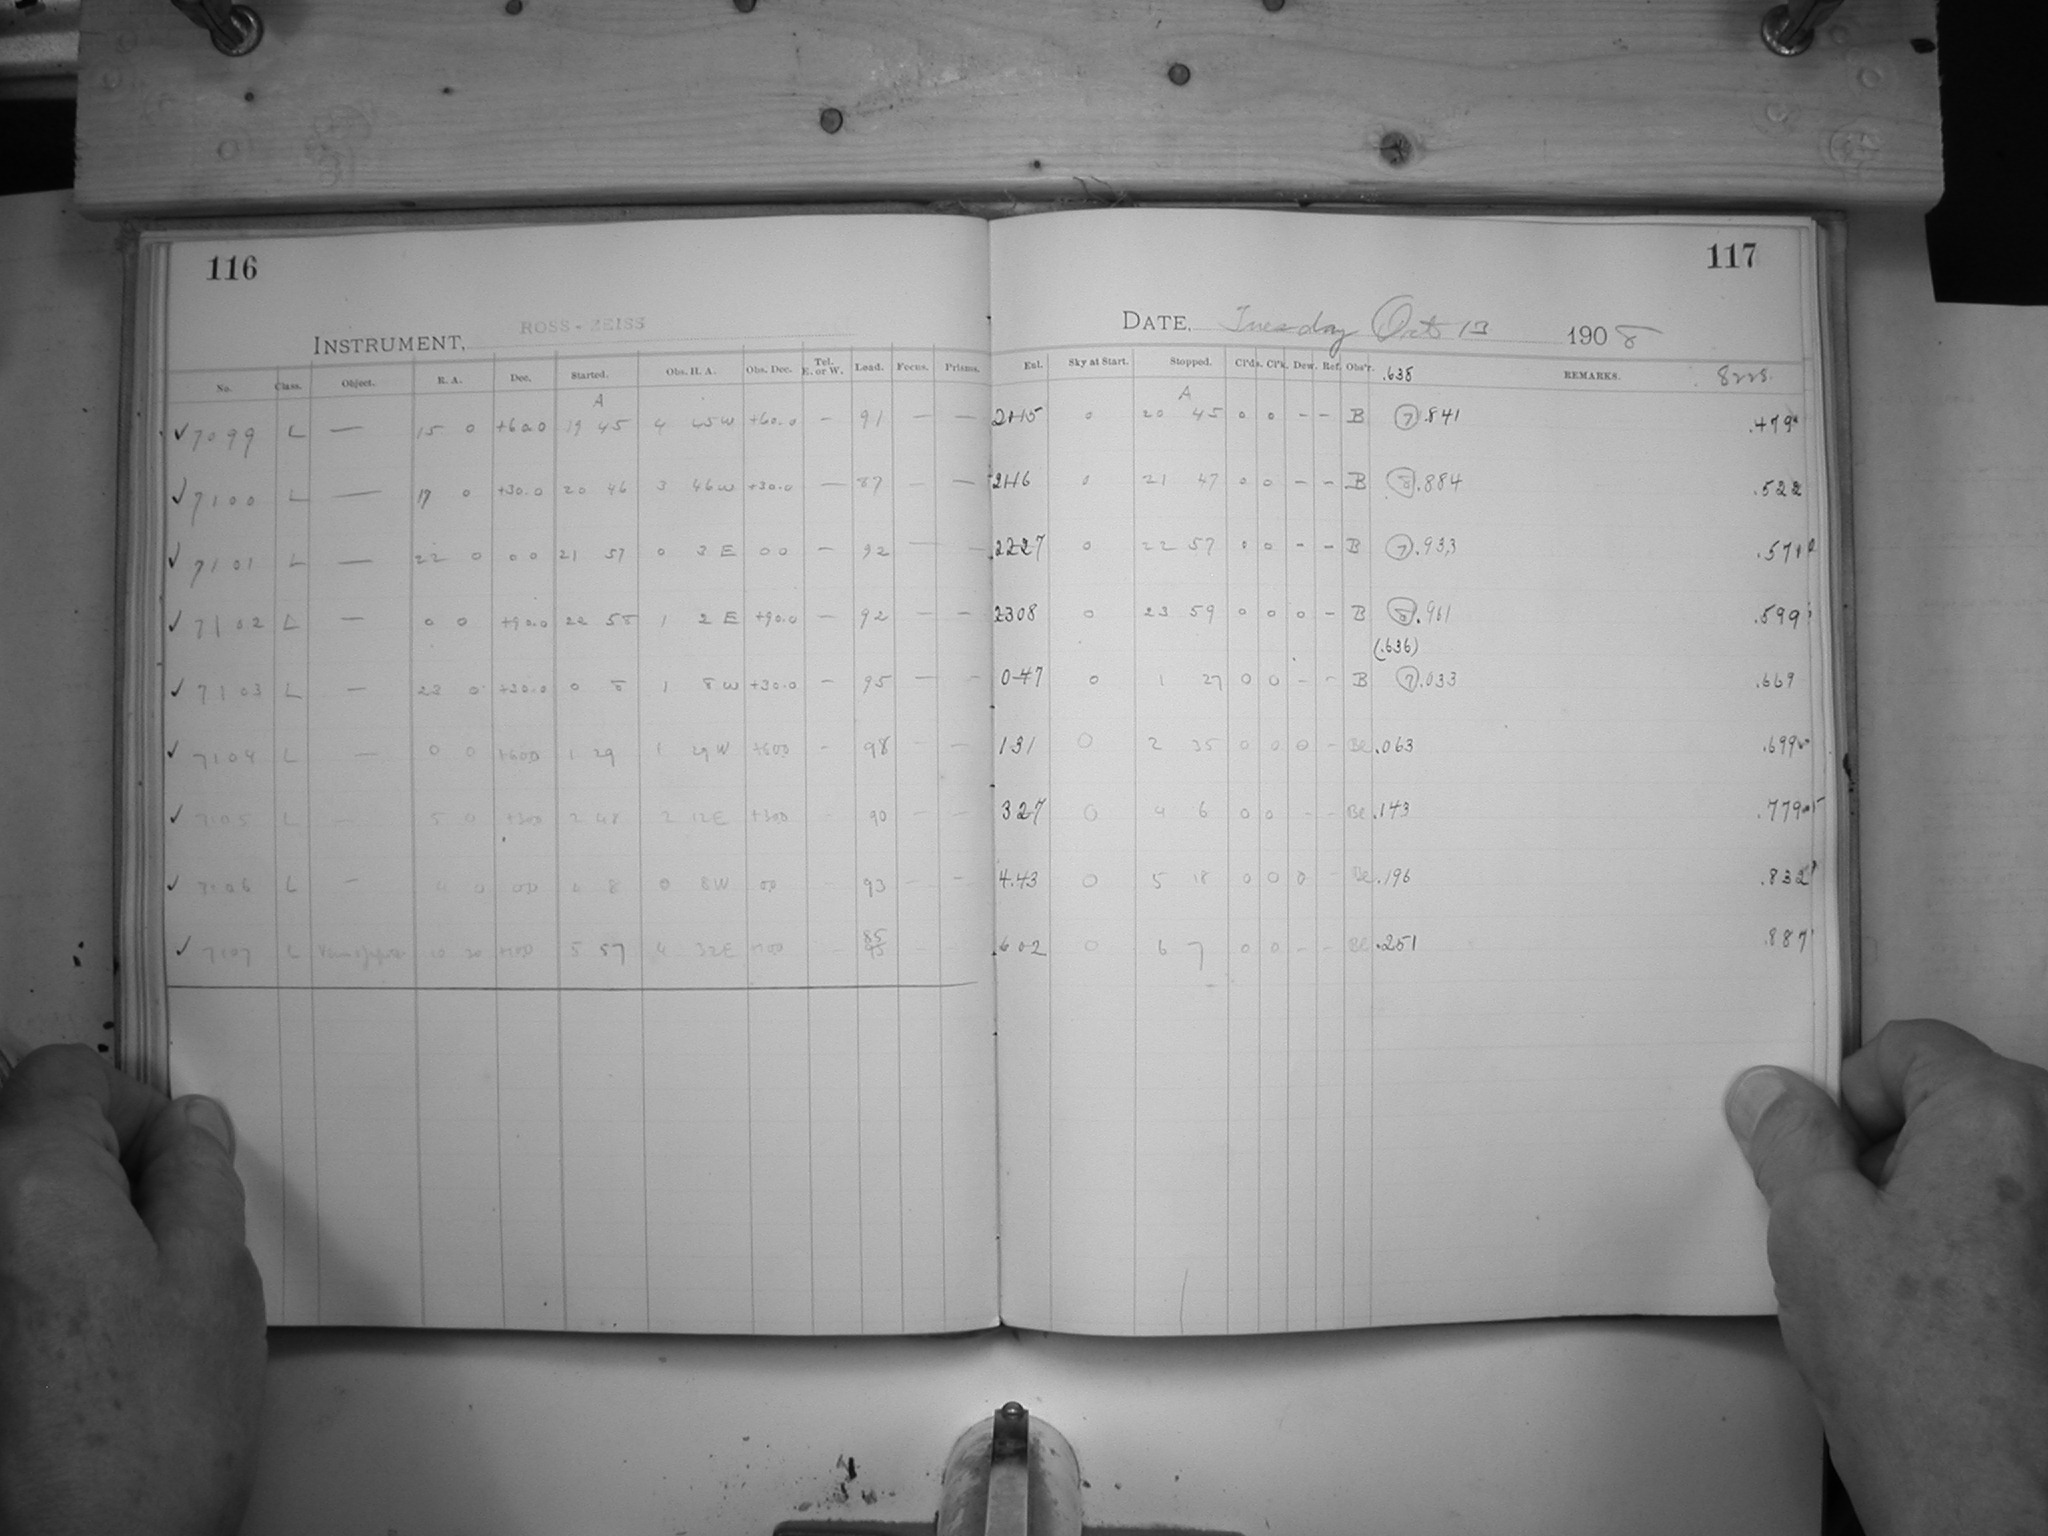 116
INSTRUMENT, ROSS-ZEISS
No. Class. Object. R. A. Dec. Started. Obs. H. A. Obs. Dec. Tel. E. or W. Load. Focus. Prisms.
A
✓ 7099 L — 15 0 +60.0 19 45 4 45W +60.0 — 91 — —
✓ 7100 L — 17 0 +30.0 20 46 3 46W +30.0 — 87 — —
✓ 7101 L — 22 0 0 0 21 57 0 3 E 0 0 — 92 — —
✓ 7102 L — 0 0 +90.0 22 58 1 2 E +90.0 — 92 — —
✓ 7103 L — 23 0 +30.0 0 8 1 8W +30.0 — 95 — —
✓ 7104 L — 0 0 +600 1 29 1 29W +600 - 98 — —
✓ 7105 L — 5 0 +300 2 48 2 12E +300 - 90 — —
✓ 7106 L — 4 0 00 4 8 0 8W 00 - 93 — —
✓ 7107 L 10 20 +100 5 57 4 32E +100 - 85 95 — —
117
DATE, Tuesday Oct 13 1908
Ent. Sky at Start. Stopped. Cl'ds. Cl'k. Dew. Ref. Obs'r. .638 REMARKS. 8228.
A
2115 0 20 45 0 0 - - B (7).841
2116 0 21 47 0 0 - - B (8).884 .522
2227 0 22 57 0 0 - - B (7).933
2308 0 23 59 0 0 0 - B (8).961 .599
(.636)
047 0 1 27 0 0 - - B (7).033 .669
131 0 2 35 0 0 0 - Be .063 .699
327 0 4 6 0 0 - - Be .143 .779
4.43 0 5 18 0 0 0 - Be .196 .832
602 0 6 7 0 0 - - Be .251 .887